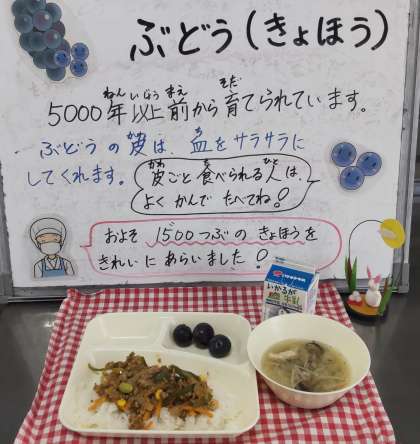 ぶどう(きょほう)
5000年以上前から育てられています。
ねん いじょう まえ そだ
ぶどうの皮は、血をサラサラに
してくれます。
皮ごと食べられる人は、
かわ た ひと
よくかんでたべてね!
およそ1500つぶのきょほうを
きれいにあらいました!
いかるが
牛乳